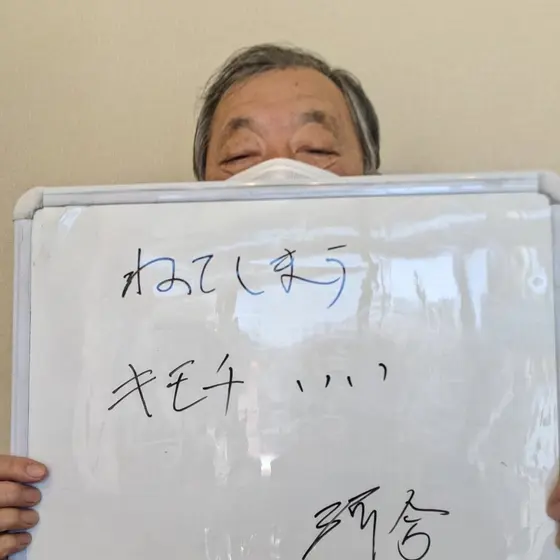 ねてしまう
キモチ いい
河合